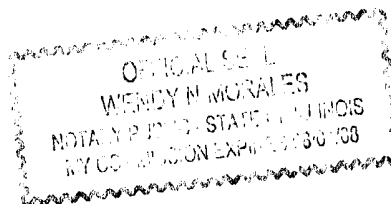 OFFICIAL SEAL
WENDY N MORALES
NOTARY PUBLIC - STATE OF ILLINOIS
MY COMMISSION EXPIRES